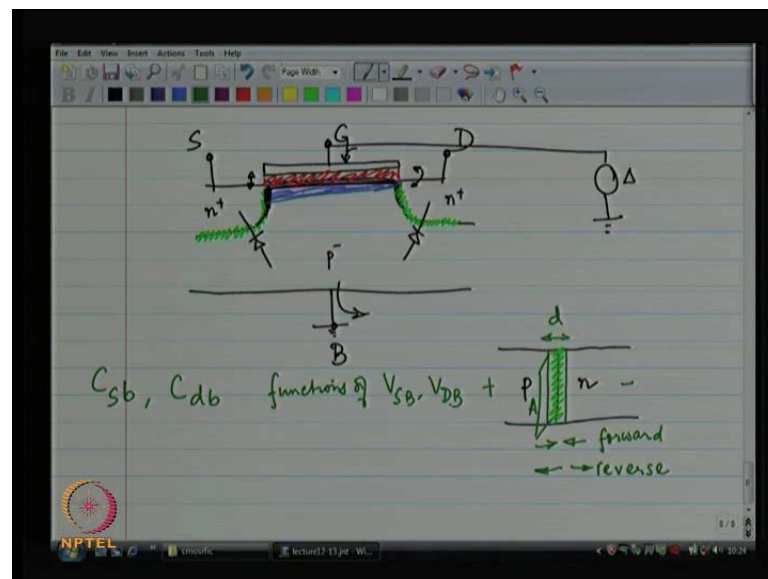 File Edit View Insert Actions Tools Help
Page Width
B I
S G D
n+ n+ Δ
p-
B
C_sb, C_db functions of V_SB, V_DB + p n -
d
A
forward
reverse
NPTEL
cmosrfic lecture12-13.jnt - Wi...
8/8
10:24